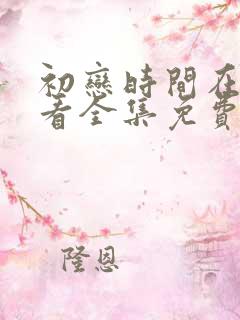 初戀時間在
看全集免費
隆恩